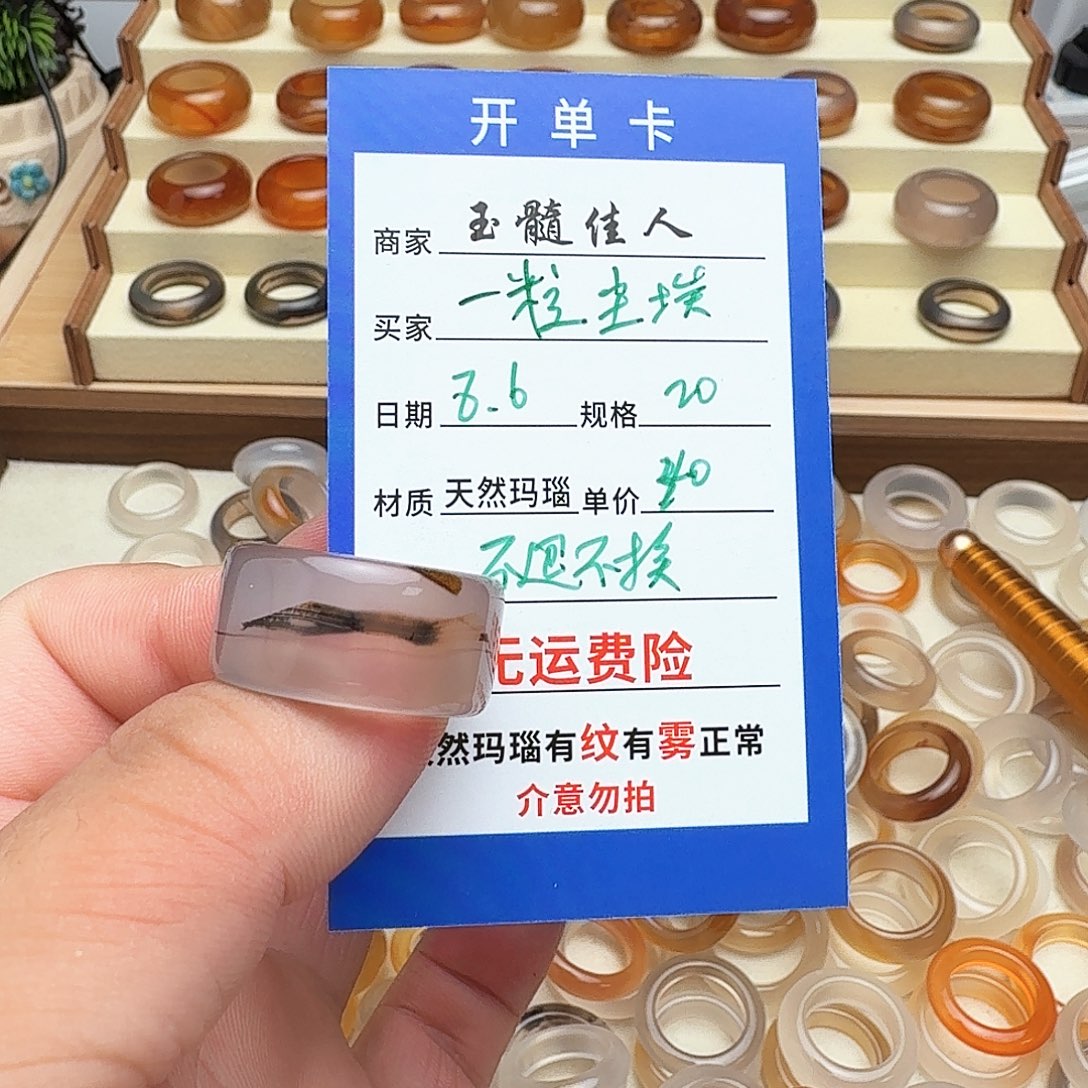 开单卡
商家 玉髓佳人
买家 一粒尘埃
日期 8.6 规格 20
材质 天然玛瑙 单价 40
不退不换
无运费险
然玛瑙有纹有雾正常
介意勿拍